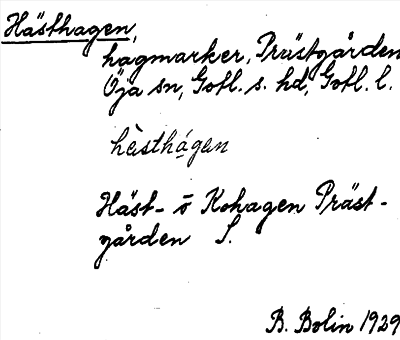 Hästhagen,
hagmarker, Prästgården
Öja sn, Gotl. s. hd, Gotl. l.
hèsthágen
Häst- o Kohagen Präst-
gården S.
B. Bolin 1929